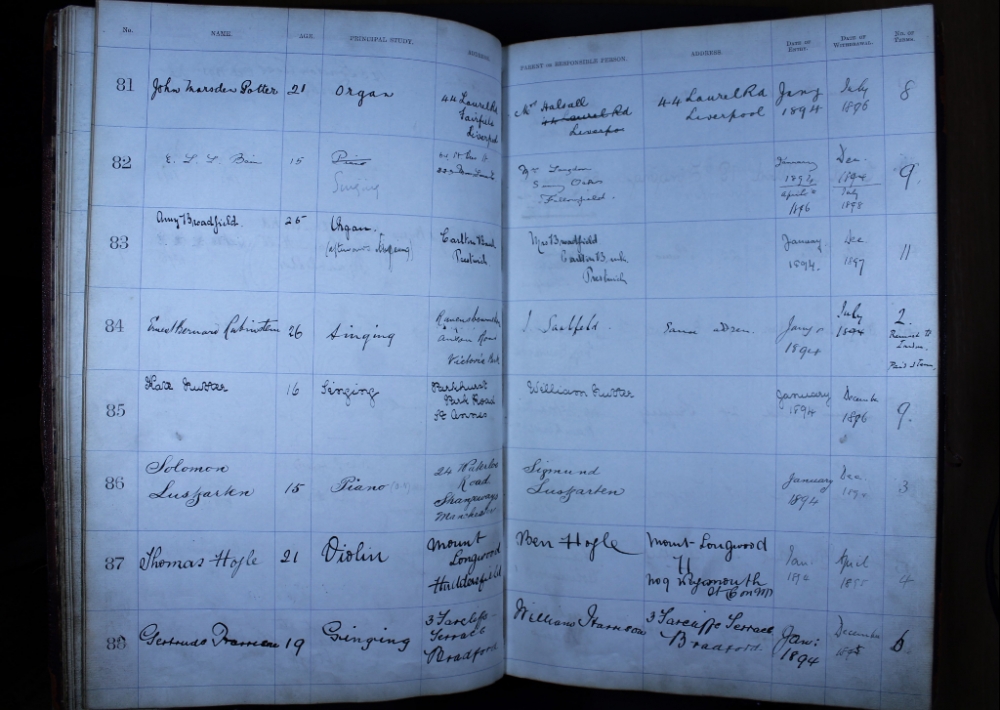 No. NAME. AGE. PRINCIPAL STUDY. ADDRESS. PARENT OR RESPONSIBLE PERSON. ADDRESS. DATE OF ENTRY. DATE OF WITHDRAWAL. NO. OF TERMS.
81 John Marsden Potter 21 Organ
44 Laurel Rd
Fairfield
Liverpool
Mrs Halsall
44 Laurel Rd
Liverpool
44 Laurel Rd
Liverpool
Jany
1894
July
1896
8
82 E. L. L. Bain 15 Piano
Singing
Mr Langdon
Sunny Oaks
Fallowfield.
January
1894
April
1896
Dec.
1894
July
1898
9
83 Amy Broadfield. 25 Organ.
(afterwards Singing)
Carlton Bank
Prestwich
Mrs Broadfield
Carlton Bank
Prestwich
January
1894.
Dec
1897
11
84 Ernest Bernard Rabinstein 26 Singing
Road
Victoria Park
J. Saalfeld.
Same address.
Jany
1894
July
1894
2.
Paid 3 Terms
85 Kate Rutter 16 Singing
Parkhurst
Park Road
St Annes
William Rutter
January
1894
December
1896
9.
86 Solomon
Lustgarten 15 Piano
24 Waterloo
Road
Strangeways
Manchester
Sigmund
Lustgarten
January
1894
Dec.
3
87 Thomas Hoyle 21 Violin
Mount
Longwood
Huddersfield
Ben Hoyle
Mount Longwood
Jan.
April
1895
4
88 Gertrude Harrison 19 Singing
3 Farcliffe
Terrace
Bradford
William Harrison
3 Farcliffe Terrace
Bradford.
Jan:
1894
December
1895
6